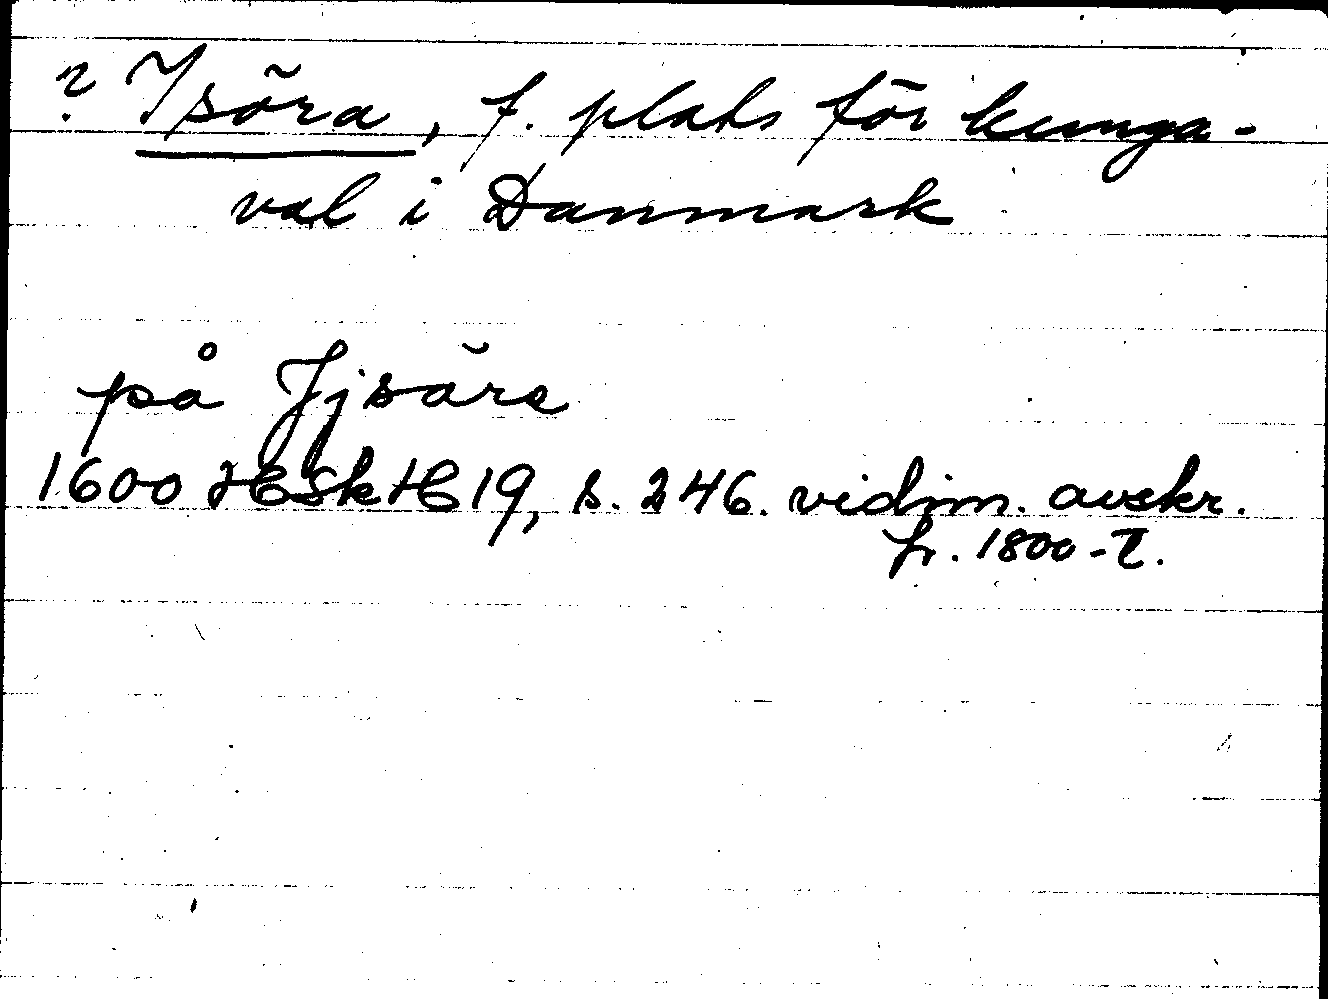 ? Isöra, f. plats för kunga-
val i Danmark
på Jjsöre
1600 HSkH 19, s. 246. vidim. avskr.
fr. 1800-t.